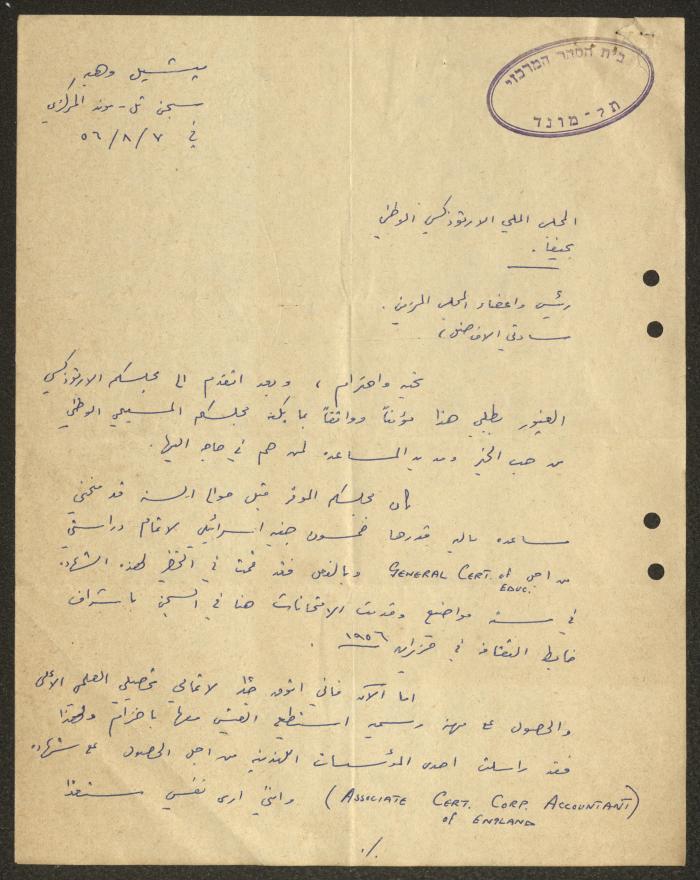 בית הסהר המרכזי
תל-מונד
ميشيل وهبه
سجن تل-موند المركزي
في ٥٦/٨/٧
المجلس الملي الارثوذكسي الوطني
بحيفا.
رئيس واعضاء المجلس المحترمين.
سادتي الافاضل،
تحيه واحترام، وبعد اتقدم الى مجلسكم الارثوذكسي
الغيور بطلبي هذا مؤمناً وواثقاً بما يكنه مجلسكم المسيحي الوطني
من حب الخير ومد يد المساعده لمن هم في حاجه اليها.
كان مجلسكم الموقر قبل حوالي السنه قد منحني
مساعده ماليه قدرها خمسون جنيه اسرائيلي لاتمام دراستي
من اجل GENERAL CERT. of EDUC. وبالفعل فقد قمت في التحضير لهذه الشهاده
في سته مواضيع وقدمت الامتحانات هنا في السجن باشراف
ضابط الثقافه في حزيران ١٩٥٦.
اما الآن فاني اتوق جداً لاتمام تحصيلي العلمي الأعلى
والحصول على مهنه رسميه استطيع العيش معها باحترام ولهذا
فقد راسلت احدى المؤسسات اللندنيه من اجل الحصول على شهاده
(ASSOCIATE CERT. CORP. ACCOUNTANT of ENGLAND) وانني ارى نفسي مستعداً
./.